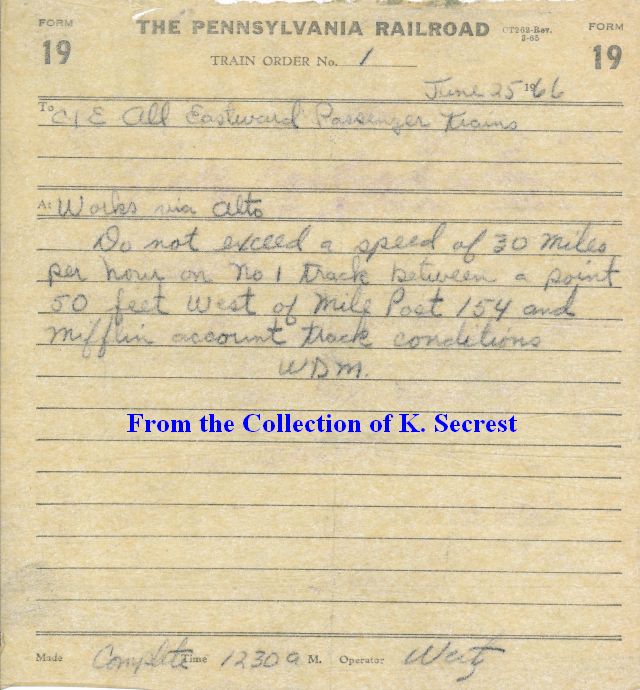 FORM 19 THE PENNSYLVANIA RAILROAD CT262-Rev. 3-65 FORM 19
TRAIN ORDER No. 1
June 25 1966
To C&E All Eastward Passenger Trains
At Works via Alto
Do not exceed a speed of 30 Miles
per hour on No 1 track between a point
50 feet West of Mile Post 154 and
Mifflin account track conditions
WDM.
From the Collection of K. Secrest
Made Complete Time 1230 a M. Operator